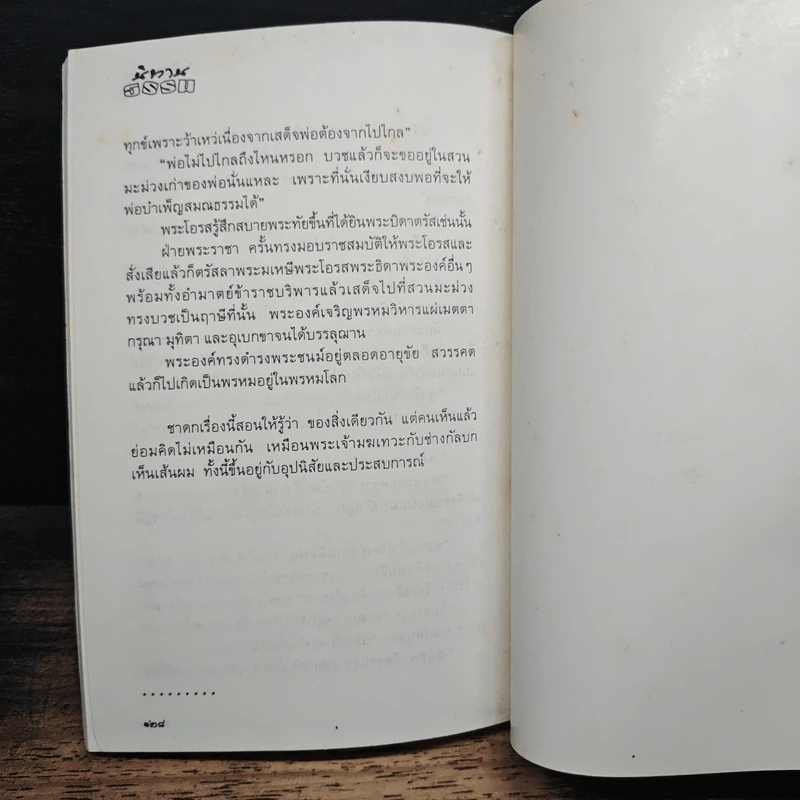 นิทาน
ธรรม
ทุกข์เพราะว้าเหว่เนื่องจากเสด็จพ่อต้องจากไปไกล”
“พ่อไม่ไปไกลถึงไหนหรอก บวชแล้วก็จะขออยู่ในสวน
มะม่วงเก่าของพ่อนั่นแหละ เพราะที่นั่นเงียบสงบพอที่จะให้
พ่อบำเพ็ญสมณธรรมได้”
พระโอรสรู้สึกสบายพระทัยขึ้นที่ได้ยินพระบิดาตรัสเช่นนั้น
ฝ่ายพระราชา ครั้นทรงมอบราชสมบัติให้พระโอรสและ
สั่งเสียแล้วก็ตรัสลาพระมเหษีพระโอรสพระธิดาพระองค์อื่นๆ
พร้อมทั้งอำมาตย์ข้าราชบริพารแล้วเสด็จไปที่สวนมะม่วง
ทรงบวชเป็นฤาษีที่นั้น พระองค์เจริญพรหมวิหารแผ่เมตตา
กรุณา มุทิตา และอุเบกขาจนได้บรรลุฌาน
พระองค์ทรงดำรงพระชนม์อยู่ตลอดอายุขัย สวรรคต
แล้วก็ไปเกิดเป็นพรหมอยู่ในพรหมโลก
ชาดกเรื่องนี้สอนให้รู้ว่า ของสิ่งเดียวกัน แต่คนเห็นแล้ว
ย่อมคิดไม่เหมือนกัน เหมือนพระเจ้ามฆเทวะกับช่างกัลบก
เห็นเส้นผม ทั้งนี้ขึ้นอยู่กับอุปนิสัยและประสบการณ์
.........
๑๒๘